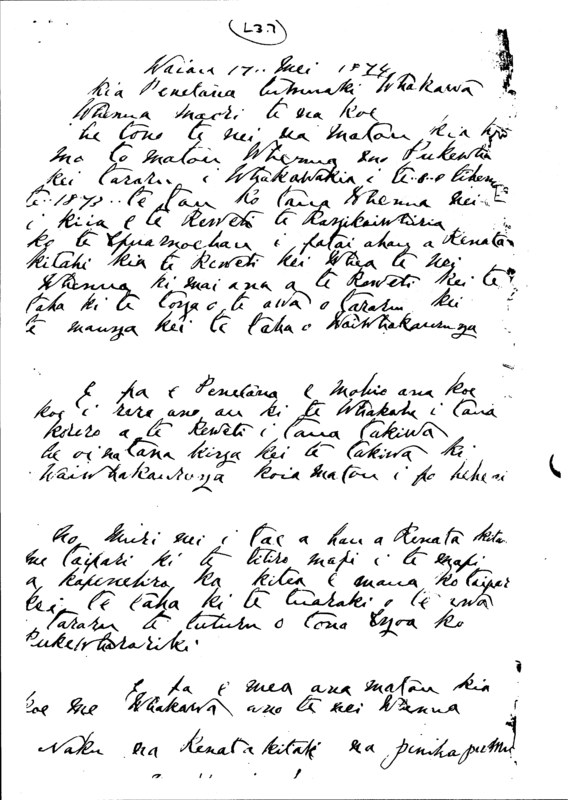 (L3.7)
Waiau 17.. Mei 1874
Kia Penetana tumuaki Whakawa
Whenua maori te na koe
he tono te nei na matou kia
mo to matou Whenua mo
kei tararu i Whakawakia i te..8..o tihema
te..1873..te tau ko taua Whenua nei
i kiia e te Reweti te
ko te i patai ahau a Renata
kitahi kia te Reweti kei Whea te nei
Whenua ki mai ana a te Reweti kei te
taha ki te tonga o te awa o tararu kei
te maunga kei te taha o Waiwhakaurunga
E pa e Penetana e mohio ana koe
koe i rira ano au ki te Whakahe i taua
korero a te Reweti i taua takiwa
he oi natana kinga kei te takiwa ki
Waiwhakaurunga koia matou i po hehe ai
No Muri nei i tae a hau a Renata kita
me taipari ki te titiro mapi i te mapi
a kapenehira ka kitea e maua ko taipari
kei te taha ki te tuaraki o te awa
tararu te tuturu o tona Ingoa ko
Pukewharariki
E pa e mea ana matou kia
koe me Whakawa ano te nei Whenua
Naku na Renata kitahi na